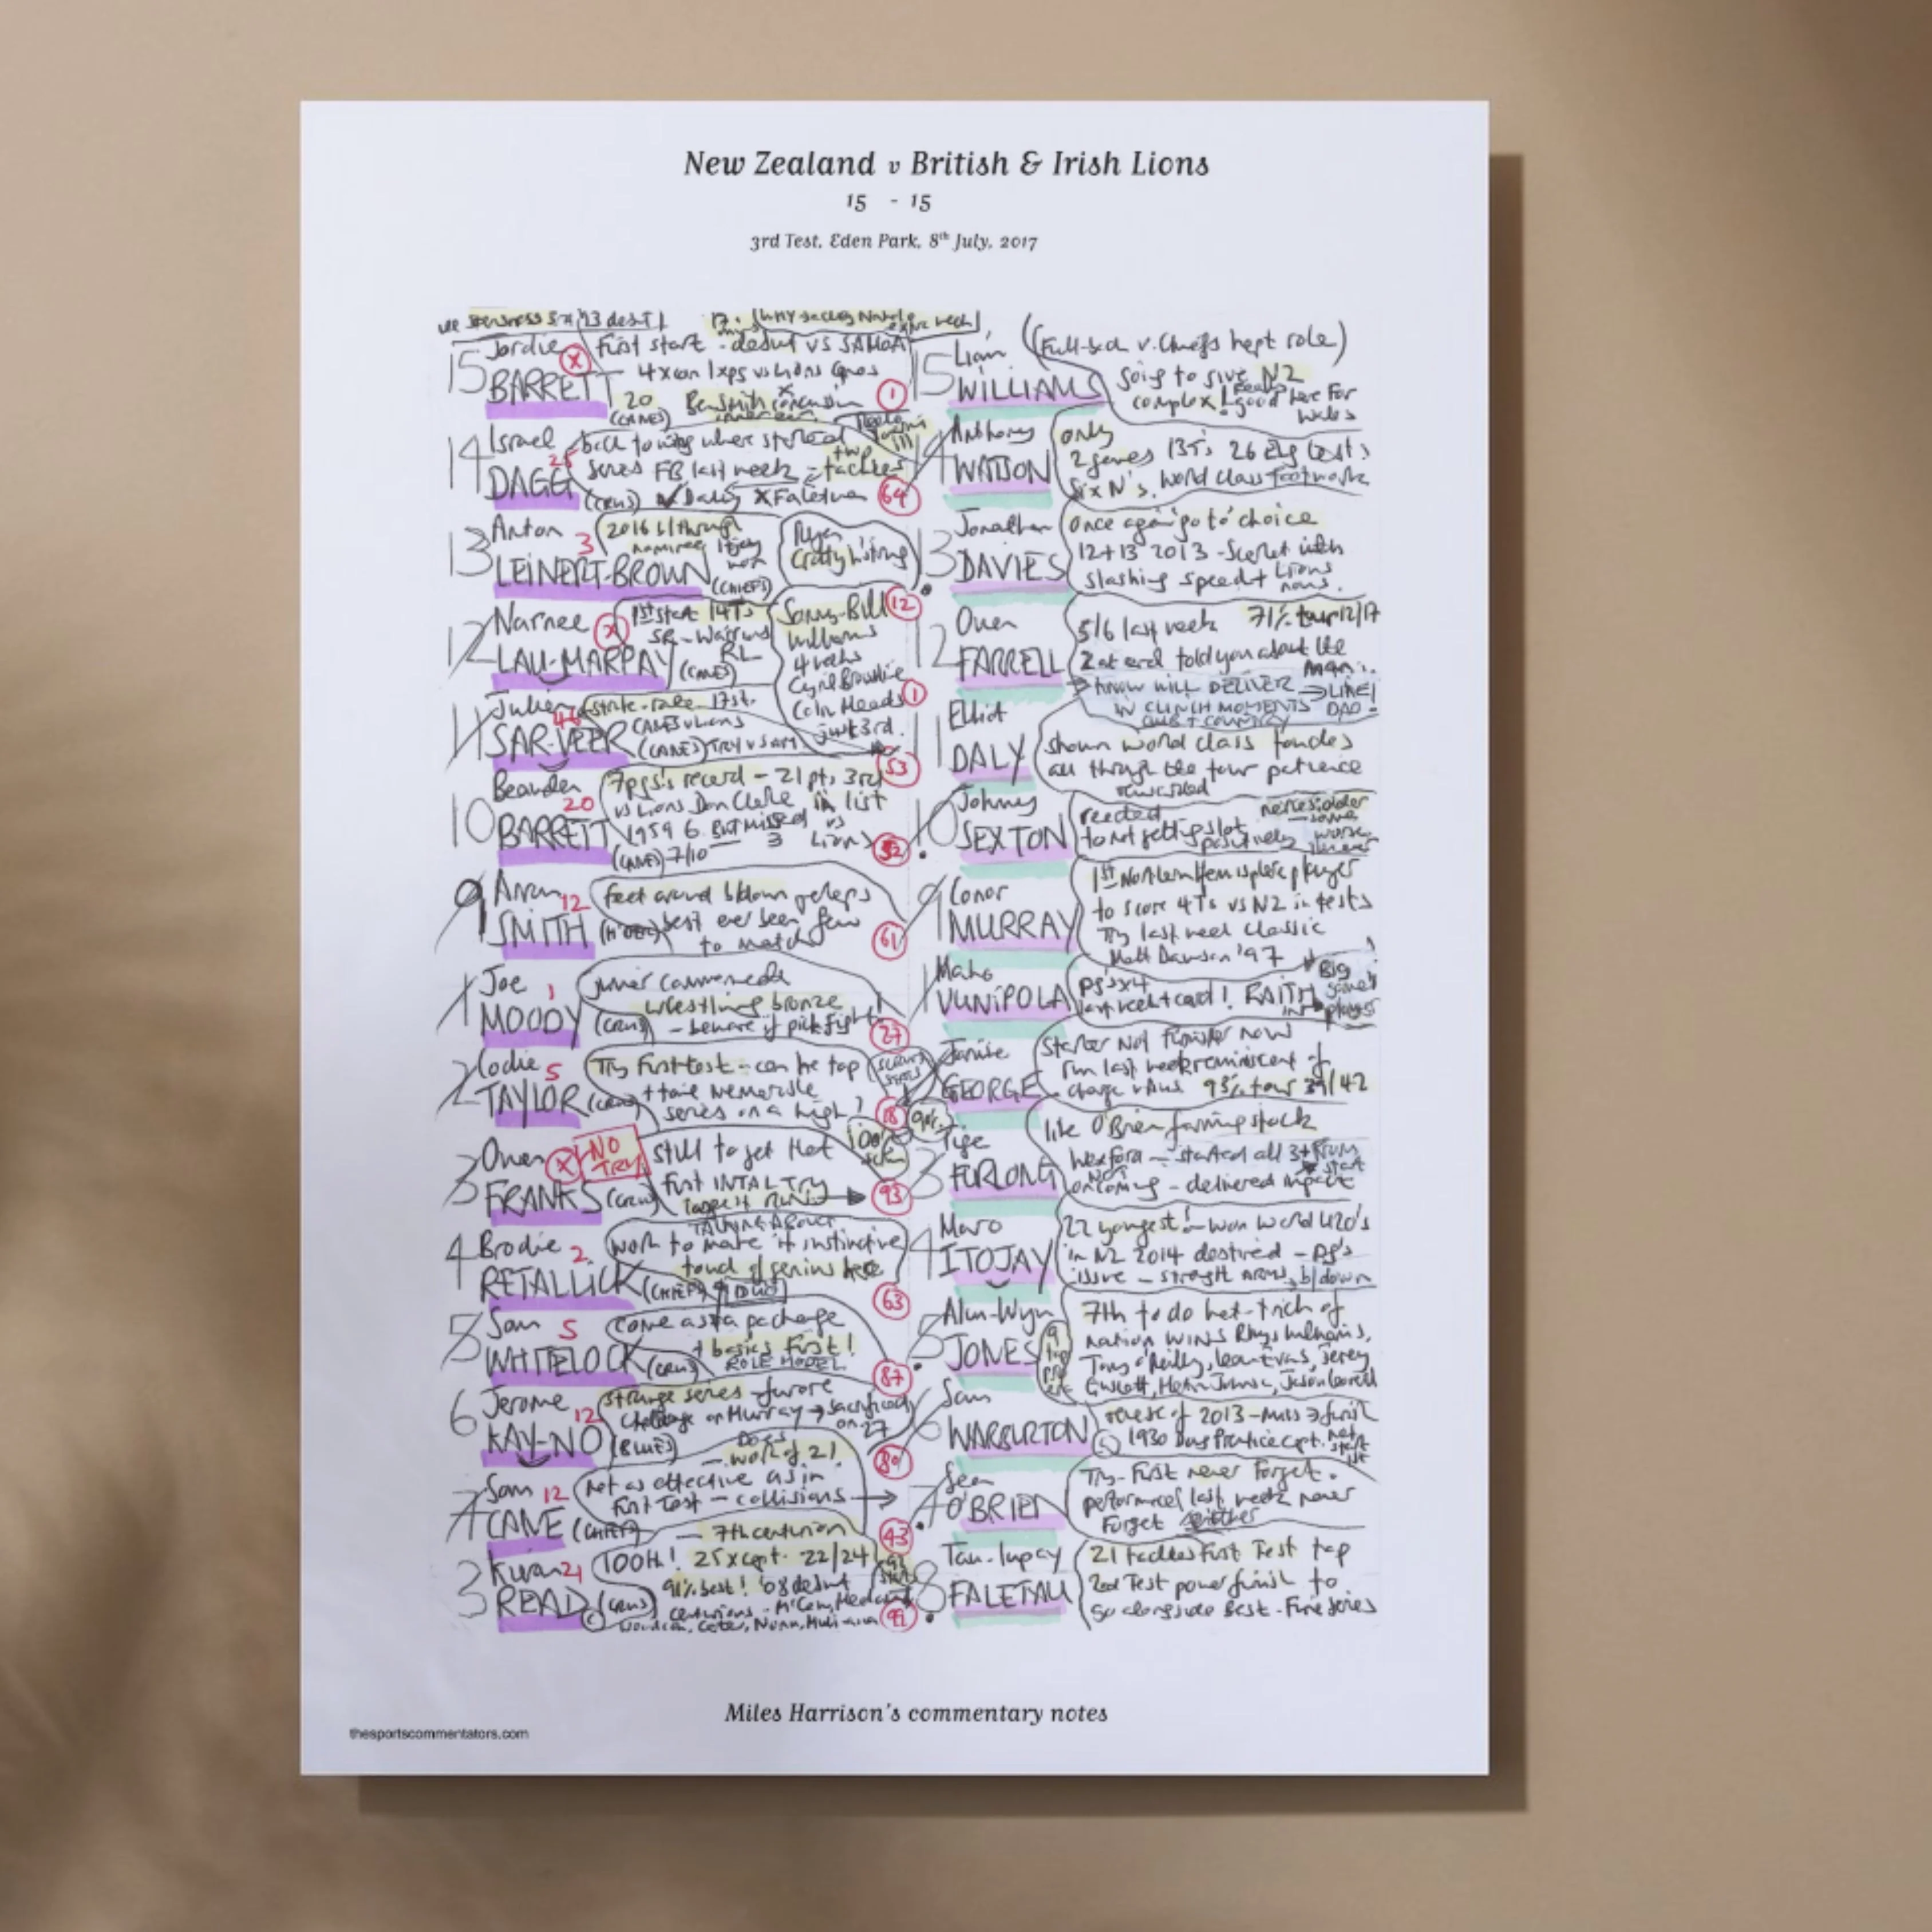 New Zealand v British & Irish Lions
15 - 15
3rd Test, Eden Park, 8th July, 2017
15 Jordie X BARRETT 20 (CANES)
First start - debut vs SAMOA
4xcon 1xpg vs Lions Canes
Ben Smith concussion
inner ear
1
14 Israel DAGG 25 (CRUS)
back to wing where started
series FB last week - two tackles
✓ Daly X Faletau
64
13 Anton 3 LEINERT-BROWN (CHIEFS)
2016 b/through
nominee
Ryan Crotty h'string
12
12 Narnee X LAU-MARPAY (CANES)
1st start 14Ts
SR - Warriors RL
Sonny-Bill Williams
4 weeks
Cyril Brownlie
Colin Meads
just 3rd.
1
11 Julien 46 SAR-VEER (CANES)
strike-rate 17st.
CANES v Lions
TRY v SAM
53
10 Beauden 20 BARRETT (CANES) 7/10
7pgs's record - 21 pts 3rd
vs Lions Don Clarke in list
1959 6. BUT MISSED 3 vs Lions
52
9 Aaron 12 SMITH
feet around b/down perhaps
best ever seen few
to match
61
1 Joe 1 MOODY (CRUS)
junior commonwealth
wrestling bronze
- beware if pick fight!
27
2 Codie 5 TAYLOR (CRUS)
Try First test - can he top
+ have memorable
series on a high?
SCRUM STATS
18
3 Owen X FRANKS (CRUS)
NO TRY
still to get that
first INTAL TRY
93
4 Brodie 2 RETALLICK (CHIEFS)
TALKING ABOUT
work to make it instinctive
touch of genius here
DUO
63
5 Sam 5 WHITELOCK (CRUS)
come as a package
+ basics first!
ROLE MODEL
87
6 Jerome 12 KAY-NO (BLUES)
strange series - furore
challenge on Murray → sacrificed
on 27
80
7 Sam 12 CANE (CHIEFS)
DOES - work of 2!
not as effective as in
First Test - collisions →
43
Kieran 21 READ (CRUS) C
- 7th centurion
100th! 25xcapt. 22/24
91% best! '08 debut
centurions - McCaw, Mealamu
Woodcock, Carter, Nonu, Muliaina
15 Liam WILLIAMS
(Full-back v. Chiefs kept role)
going to give NZ
complex! good here for
Wales
14 Anthony WATSON
only
2 games 13Ts 26 Eng tests
Six N's. world class footwork
13 Jonathan DAVIES
once again 'go to' choice
12+13 2013 - Scarlet with
slashing speed + Lions
nous.
12 Owen FARRELL
5/6 last week 71% tour 12/17
2 at end told you about the
man..
→ KNOW WILL DELIVER → LIKE!
IN CLINCH MOMENTS DAD!
CLUB + COUNTRY
11 Elliot DALY
shown world class touches
all through the tour patience
rewarded
10 Johnny SEXTON
reacted
to not getting slot
positively
9 Conor MURRAY
1st Northern Hemisphere player
to score 4Ts vs NZ in tests
Try last week classic
Matt Dawson '97
1 Mako VUNIPOLA
pg's x4
last week + card! FAITH IN
Big game player
2 Jamie GEORGE
starter not finisher now
run last week reminiscent of
charge v Aus 93% tour 39/42
3 Tige FURLONG
like O'Brien farming stock
Wexford - started all 3 + FROM start
NOT oncoming - delivered impact
4 Maro ITOJAY
22 youngest! - won world U20's
in NZ 2014 destined - pg's
issue - strength ARMS, b/down
5 Alun-Wyn JONES
7th to do hat-trick of
nation WINS Rhys Williams,
Tony O'Reilly, Ieuan Evans, Jeremy
Guscott, Martin Johnson, Jason Leonard
6 Sam WARBURTON
reverse of 2013 - Miss → finish
1930 Doug Prentice cpt. not
start 1st
7 Sean O'BRIEN
Try - First never forget.
performance last week never
forget either
8 Tau-lupay FALETAU
21 tackles First Test top
2nd Test power finish to
go alongside best - Fine series
Miles Harrison's commentary notes
thesportscommentators.com